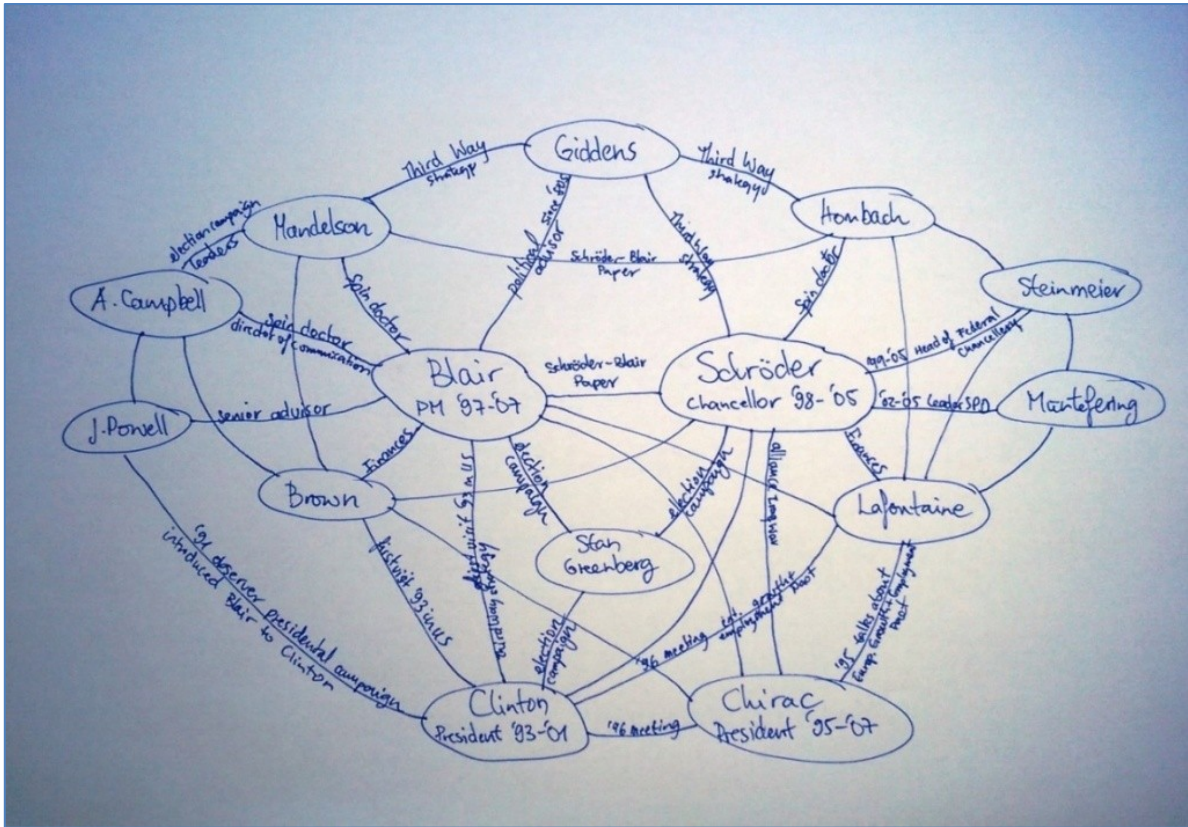 Giddens
Third Way
strategy
Third Way
strategy
Mandelson
Hombach
election campaign
leaders
political advisor since '80s
Third Way
strategy
Schröder-Blair
Paper
Spin doctor
Spin doctor
Steinmeier
A. Campbell
Spin doctor
director of communication
'99-'05 Head of Federal
Chancellery
Blair
PM '97-'07
Schröder-Blair
Paper
Schröder
Chancellor '98-'05
'02-'05 Leader SPD
Müntefering
J. Powell
senior advisor
Finances
Finances
election
campaign
election
campaign
alliance
Brown
Lafontaine
Stan
Greenberg
first visit '93 in US
first visit '93 in US
economy strategy
observer presidental campaign
introduced Blair to
Clinton
election
campaign
'96 meeting
growth +
employment Pact
'95 talks about
Europ. Growth + Employment
Pact
Clinton
President '93-'01
'96 meeting
Chirac
President '95-'07